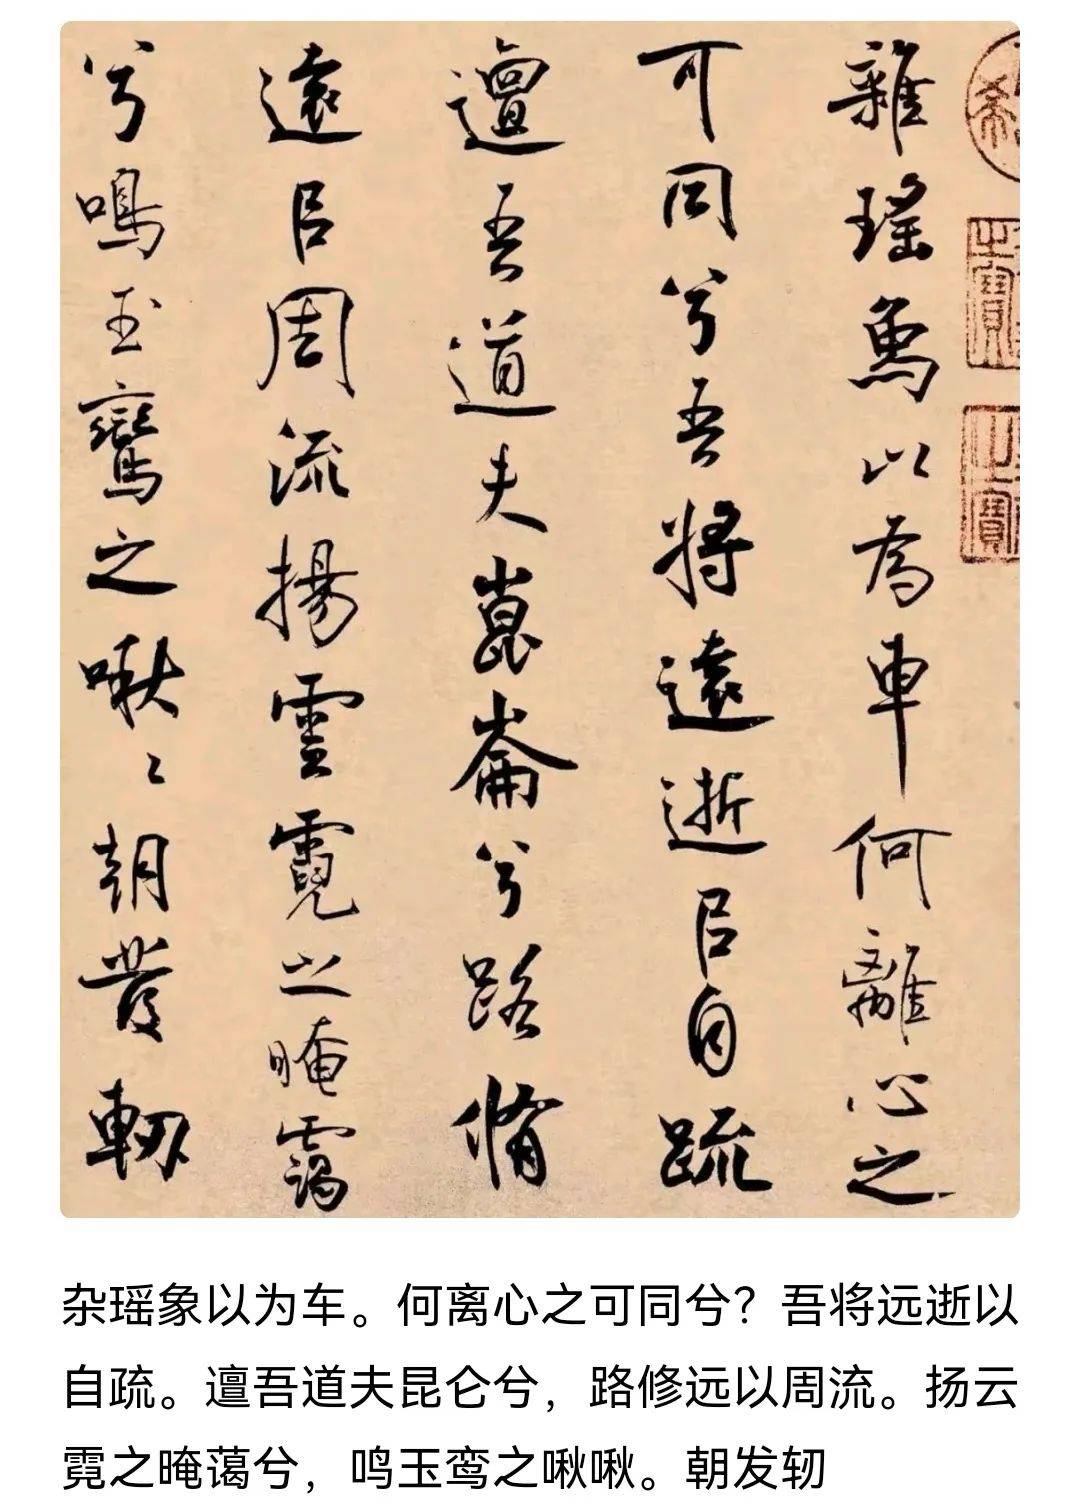 之寶
之寶
雜瑤象以為車何離心之
可同兮吾將遠逝㠯自疏
邅吾道夫崑崙兮路脩
遠㠯周流揚雲霓之晻靄
兮鳴玉鸞之啾〻朝發軔
杂瑶象以为车。何离心之可同兮？吾将远逝以
自疏。邅吾道夫昆仑兮，路修远以周流。扬云
霓之晻蔼兮，鸣玉鸾之啾啾。朝发轫